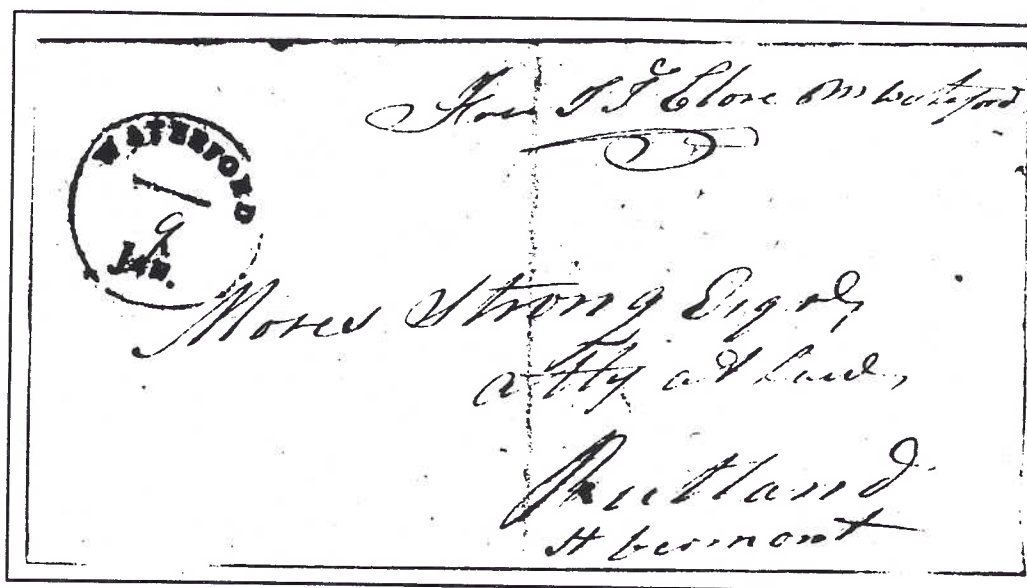 Free J T Clove PM Waterford
WATERFORD
9
Jan.
Moses Strong Esqr
atty at Law,
Rutland
Vermont